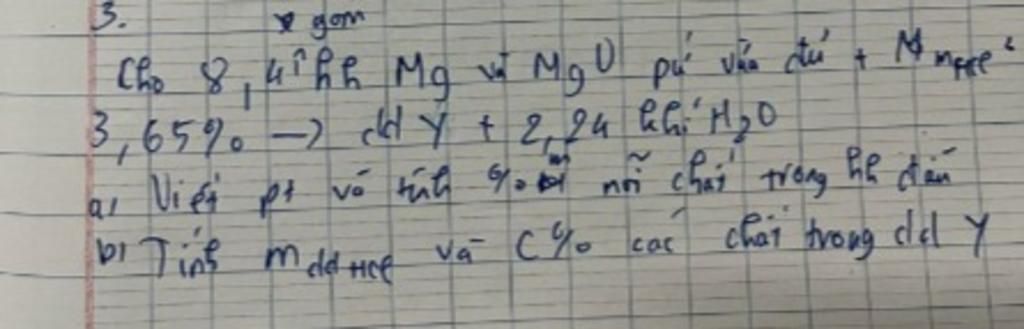 3. x gồm
Cho 8,4 hh Mg và MgO pứ vừa đủ + M mHCl
3,65% → dd Y + 2,24 khí H2O
a, Viết pt và tính % mỗi chất trong hh đầu
b) Tính mddHCl và C% các chất trong dd Y